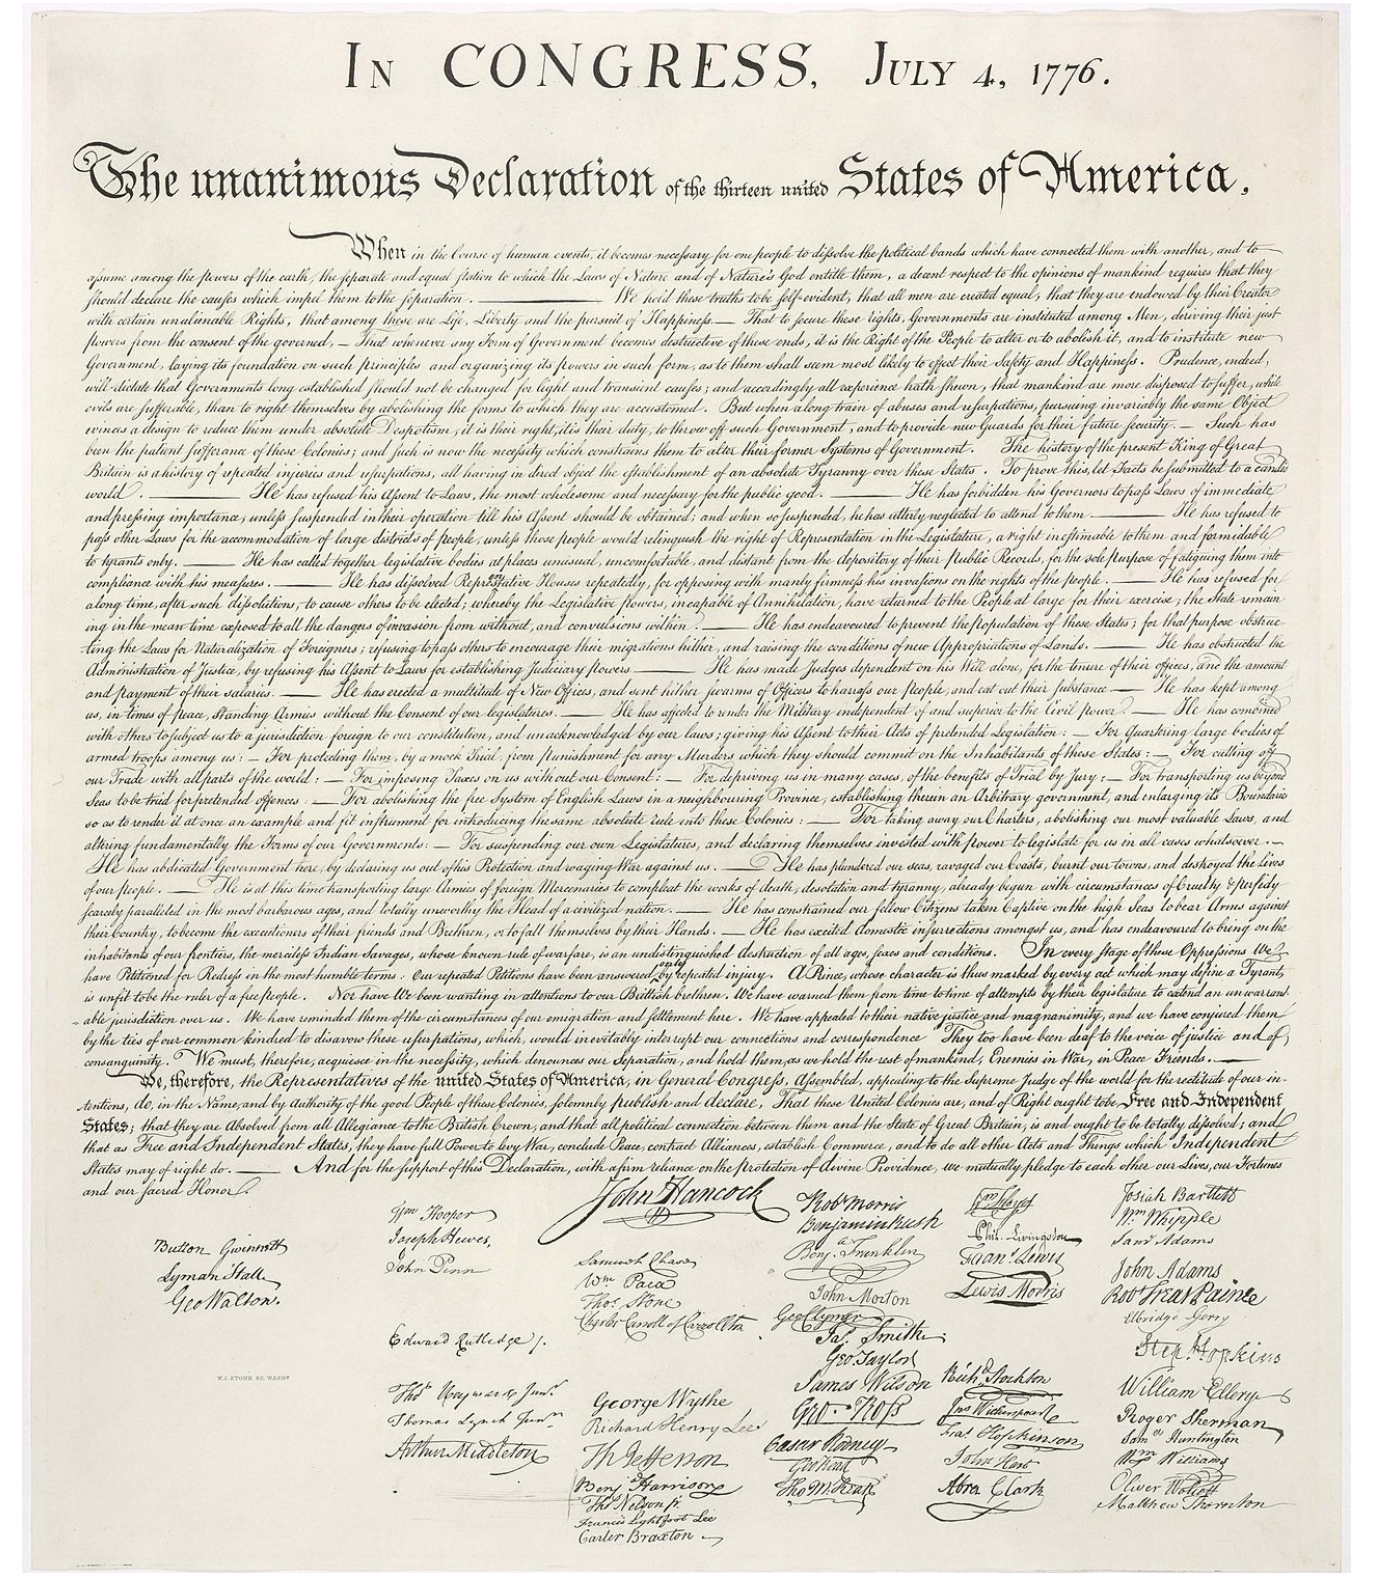 In CONGRESS, July 4, 1776.
The unanimous Declaration of the thirteen united States of America,
When in the Course of human events, it becomes necessary for one people to dissolve the political bands which have connected them with another, and to
assume among the powers of the earth, the separate and equal station to which the Laws of Nature and of Nature's God entitle them, a decent respect to the opinions of mankind requires that they
should declare the causes which impel them to the separation. ——— We hold these truths to be self-evident, that all men are created equal, that they are endowed by their Creator
with certain unalienable Rights, that among these are Life, Liberty and the pursuit of Happiness.— That to secure these rights, Governments are instituted among Men, deriving their just
powers from the consent of the governed, — That whenever any Form of Government becomes destructive of these ends, it is the Right of the People to alter or to abolish it, and to institute new
Government, laying its foundation on such principles and organizing its powers in such form, as to them shall seem most likely to effect their Safety and Happiness. Prudence, indeed,
will dictate that Governments long established should not be changed for light and transient causes; and accordingly all experience hath shewn, that mankind are more disposed to suffer, while
evils are sufferable, than to right themselves by abolishing the forms to which they are accustomed. But when a long train of abuses and usurpations, pursuing invariably the same Object
evinces a design to reduce them under absolute Despotism, it is their right, it is their duty, to throw off such Government, and to provide new Guards for their future security. — Such has
been the patient sufferance of these Colonies; and such is now the necessity which constrains them to alter their former Systems of Government. The history of the present King of Great
Britain is a history of repeated injuries and usurpations, all having in direct object the establishment of an absolute Tyranny over these States. To prove this, let Facts be submitted to a candid
world. ——— He has refused his Assent to Laws, the most wholesome and necessary for the public good. ——— He has forbidden his Governors to pass Laws of immediate
and pressing importance, unless suspended in their operation till his Assent should be obtained; and when so suspended, he has utterly neglected to attend to them. ——— He has refused to
pass other Laws for the accommodation of large districts of people, unless those people would relinquish the right of Representation in the Legislature, a right inestimable to them and formidable
to tyrants only. ——— He has called together legislative bodies at places unusual, uncomfortable, and distant from the depository of their Public Records, for the sole purpose of fatiguing them into
compliance with his measures. ——— He has dissolved Representative Houses repeatedly, for opposing with manly firmness his invasions on the rights of the people. ——— He has refused for
a long time, after such dissolutions, to cause others to be elected; whereby the Legislative powers, incapable of Annihilation, have returned to the People at large for their exercise; the State remain
ing in the mean time exposed to all the dangers of invasion from without, and convulsions within. ——— He has endeavoured to prevent the population of these States; for that purpose obstruc
ting the Laws for Naturalization of Foreigners; refusing to pass others to encourage their migrations hither, and raising the conditions of new Appropriations of Lands. ——— He has obstructed the
Administration of Justice, by refusing his Assent to Laws for establishing Judiciary powers ——— He has made Judges dependent on his Will alone, for the tenure of their offices, and the amount
and payment of their salaries. ——— He has erected a multitude of New Offices, and sent hither swarms of Officers to harrass our people, and eat out their substance ——— He has kept among
us, in times of peace, Standing Armies without the Consent of our legislatures. ——— He has affected to render the Military independent of and superior to the Civil power. ——— He has combined
with others to subject us to a jurisdiction foreign to our constitution, and unacknowledged by our laws; giving his Assent to their Acts of pretended Legislation: — For Quartering large bodies of
armed troops among us: — For protecting them, by a mock Trial, from punishment for any Murders which they should commit on the Inhabitants of these States: — For cutting off
our Trade with all parts of the world: — For imposing Taxes on us without our Consent: — For depriving us in many cases, of the benefits of Trial by Jury: — For transporting us beyond
Seas to be tried for pretended offences: — For abolishing the free System of English Laws in a neighbouring Province, establishing therein an Arbitrary government, and enlarging its Boundaries
so as to render it at once an example and fit instrument for introducing the same absolute rule into these Colonies: — For taking away our Charters, abolishing our most valuable Laws, and
altering fundamentally the Forms of our Governments: — For suspending our own Legislatures, and declaring themselves invested with power to legislate for us in all cases whatsoever. —
He has abdicated Government here, by declaring us out of his Protection and waging War against us. ——— He has plundered our seas, ravaged our Coasts, burnt our towns, and destroyed the lives
of our people. ——— He is at this time transporting large Armies of foreign Mercenaries to compleat the works of death, desolation and tyranny, already begun with circumstances of Cruelty & perfidy
scarcely paralleled in the most barbarous ages, and totally unworthy the Head of a civilized nation. ——— He has constrained our fellow Citizens taken Captive on the high Seas to bear Arms against
their Country, to become the executioners of their friends and Brethren, or to fall themselves by their Hands. ——— He has excited domestic insurrections amongst us, and has endeavoured to bring on the
inhabitants of our frontiers, the merciless Indian Savages, whose known rule of warfare, is an undistinguished destruction of all ages, sexes and conditions. In every stage of these Oppressions We
have Petitioned for Redress in the most humble terms: Our repeated Petitions have been answered only by repeated injury. A Prince, whose character is thus marked by every act which may define a Tyrant,
is unfit to be the ruler of a free people. Nor have We been wanting in attentions to our Brittish brethren. We have warned them from time to time of attempts by their legislature to extend an unwarrant
able jurisdiction over us. We have reminded them of the circumstances of our emigration and settlement here. We have appealed to their native justice and magnanimity, and we have conjured them
by the ties of our common kindred to disavow these usurpations, which, would inevitably interrupt our connections and correspondence They too have been deaf to the voice of justice and of
consanguinity. We must, therefore, acquiesce in the necessity, which denounces our Separation, and hold them, as we hold the rest of mankind, Enemies in War, in Peace Friends. ———
We, therefore, the Representatives of the united States of America, in General Congress, Assembled, appealing to the Supreme Judge of the world for the rectitude of our in-
tentions, do, in the Name, and by Authority of the good People of these Colonies, solemnly publish and declare, That these United Colonies are, and of Right ought to be Free and Independent
States; that they are Absolved from all Allegiance to the British Crown, and that all political connection between them and the State of Great Britain, is and ought to be totally dissolved; and
that as Free and Independent States, they have full Power to levy War, conclude Peace, contract Alliances, establish Commerce, and to do all other Acts and Things which Independent
States may of right do. ——— And for the support of this Declaration, with a firm reliance on the protection of divine Providence, we mutually pledge to each other our Lives, our Fortunes
and our sacred Honor.
Button Gwinnett
Lyman Hall
Geo Walton.
Wm Hooper
Joseph Hewes,
John Penn
Edward Rutledge /.
Thos Heyward Junr.
Thomas Lynch Junr.
Arthur Middleton
John Hancock
Samuel Chase
Wm Paca
Thos Stone
Charles Carroll of Carrollton
George Wythe
Richard Henry Lee
Th Jefferson
Benj Harrison
Thos Nelson jr.
Francis Lightfoot Lee
Carter Braxton
Robt Morris
Benjamin Rush
Benja Franklin
John Morton
Geo Clymer
Jas Smith
Geo Taylor
James Wilson
Geo. Ross
Caesar Rodney
Geo Read
Tho M:Kean
Wm Floyd
Phil. Livingston
Frans Lewis
Lewis Morris
Richd Stockton
Jno Witherspoon
Fras Hopkinson
John Hart
Abra Clark
Josiah Bartlett
Wm Whipple
Saml Adams
John Adams
Robt Treat Paine
Elbridge Gerry
Step. Hopkins
William Ellery
Roger Sherman
Saml Huntington
Wm Williams
Oliver Wolcott
Matthew Thornton
W.J. STONE SC. WASHN